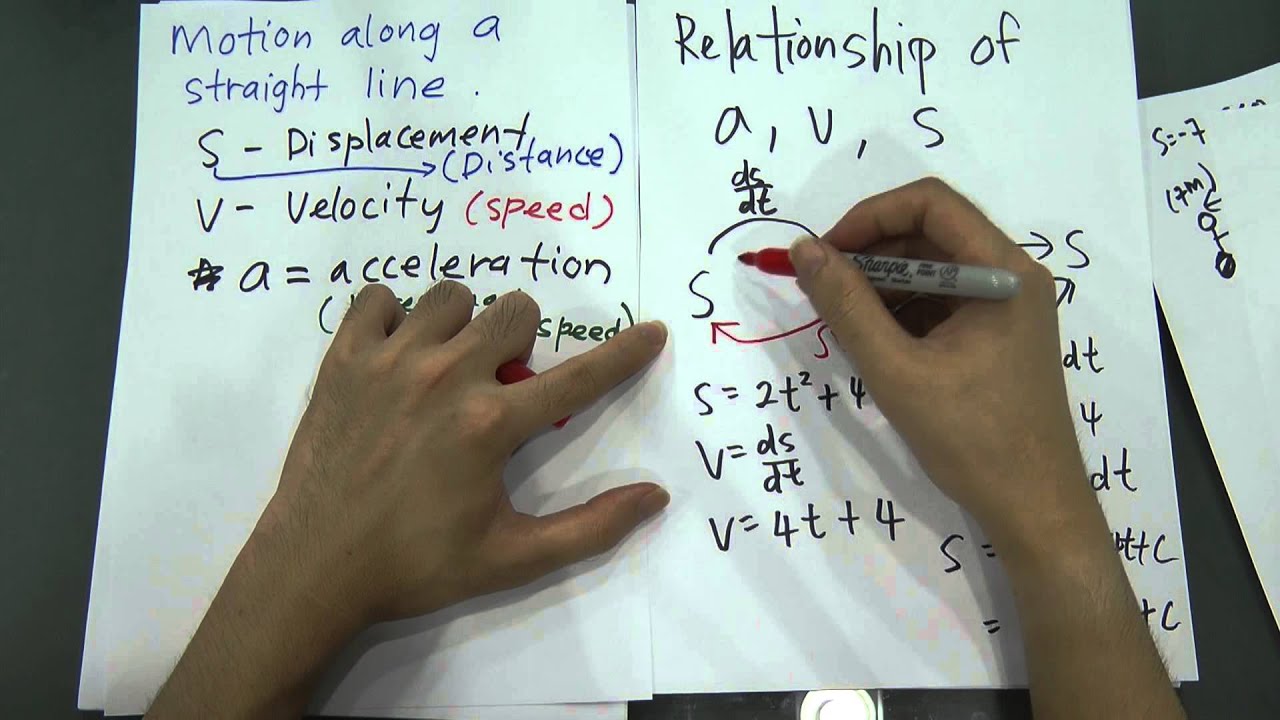 Motion along a
straight line.
S - Displacement
(Distance)
V - Velocity (speed)
* a = acceleration
( speed)
Relationship of
a, v, s
ds
dt
S
S
S
S = 2t² + 4
V = ds
dt
V = 4t + 4
dt
4
dt
S = t+C
= +C
Sharpie
S=-7
(7m)